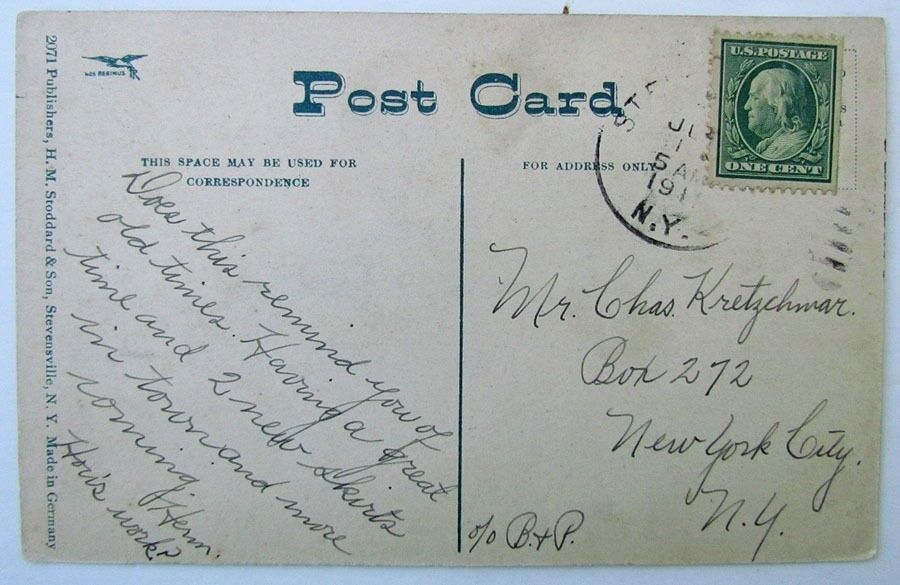 2071 Publishers, H. M. Stoddard & Son, Stevensville, N. Y. Made in Germany
Post Card
THIS SPACE MAY BE USED FOR
CORRESPONDENCE
FOR ADDRESS ONLY
U.S. POSTAGE
ONE CENT
5 AM
191
N.Y.
Does this remind you of
old times. Having a great
time and 2 new skirts
in town and more
coming. Herm.
How's work?
Mr. Chas. Kretzchmar.
Box 272
New York City.
N.Y.
c/o B. + P.